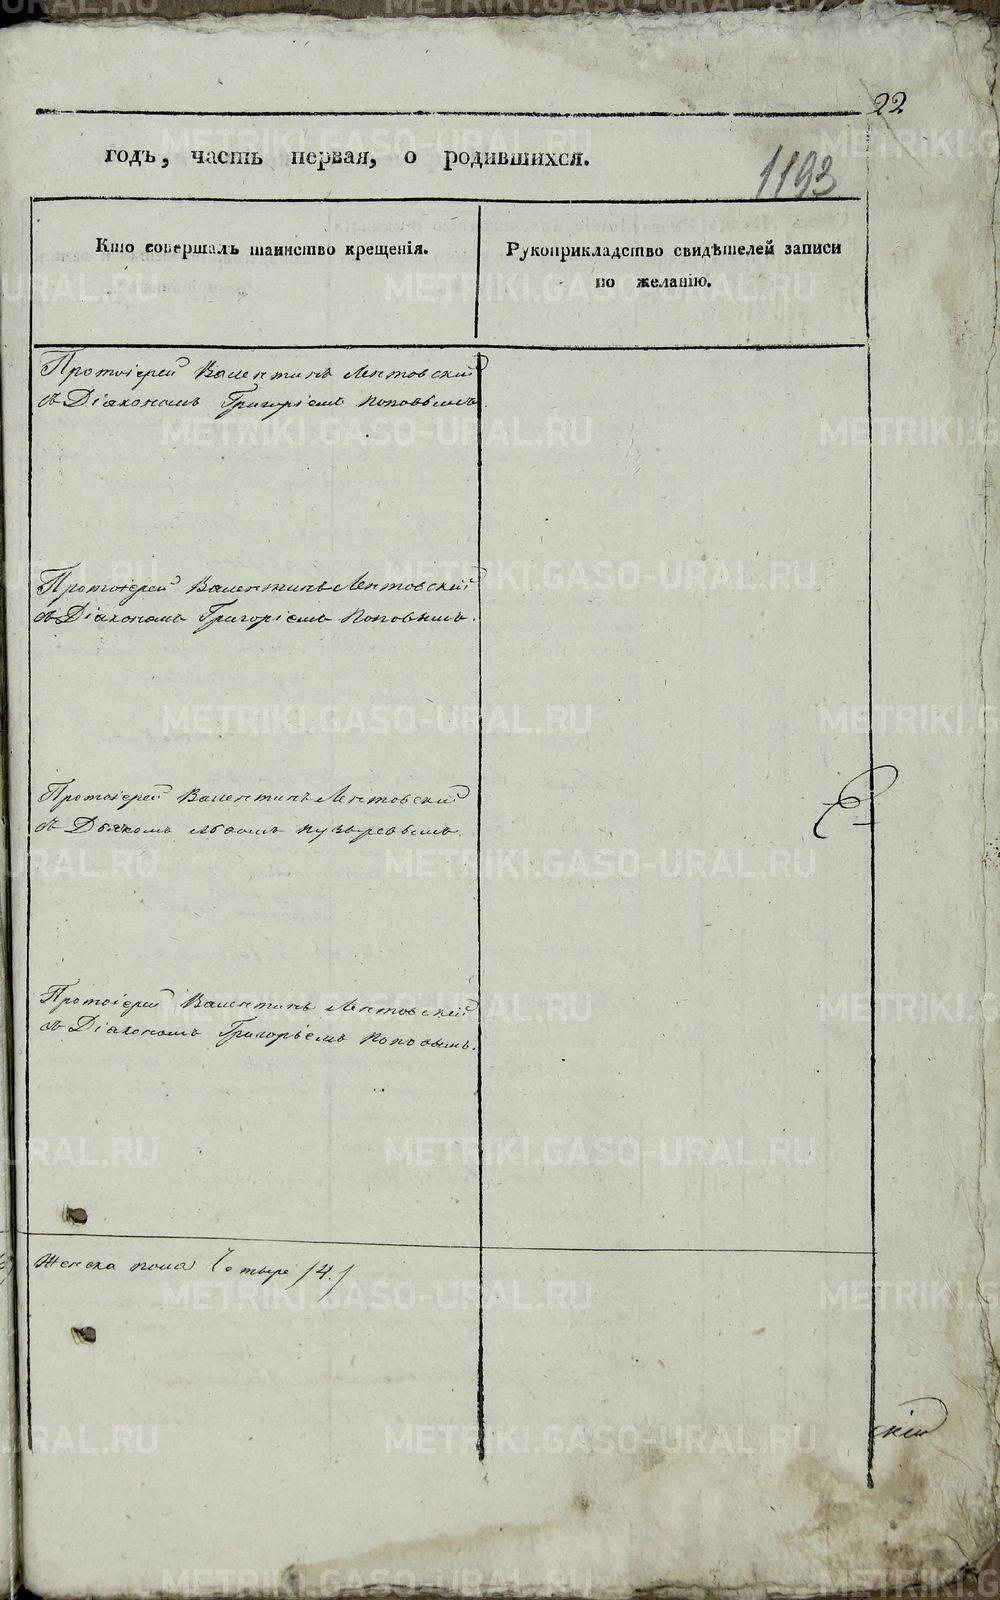 22
годъ, часть первая, о родившихся.
1193
Кто совершалъ таинство крещенія.
Рукоприкладство свидѣтелей записи
по желанію.
Протоіерей Валентинъ Лентовский
съ Діакономъ Григоріемъ Поповымъ
Протоіерей Валентинъ Лентовскій
съ Діакономъ Григоріемъ Поповымъ.
Протоіерей Валентинъ Лентовский
съ Дьякомъ Львомъ Пузыревымъ.
Протоіерей Валентинъ Лентовскій
съ Діакономъ Григорьемъ Поповымъ.
Женска пола Четыре /4./
скій
METRIKI.GASO-URAL.RU